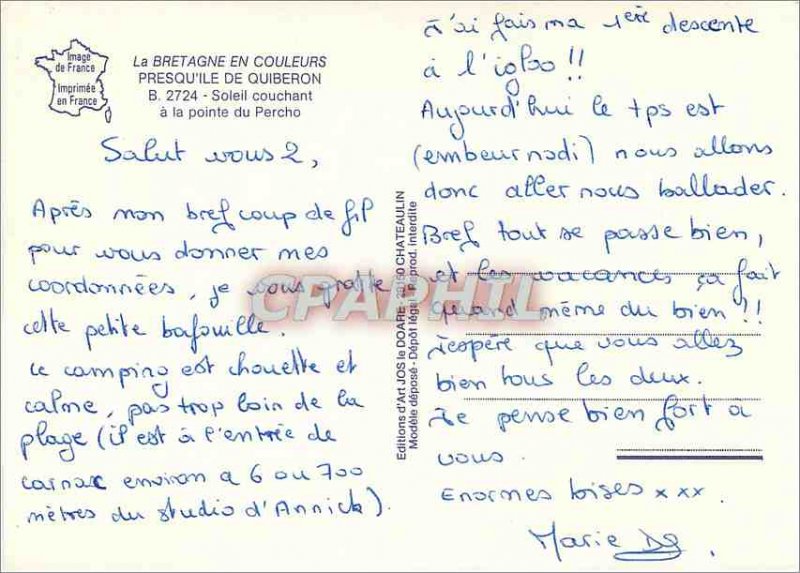 Image
de France
Imprimée
en France
La BRETAGNE EN COULEURS
PRESQU'ILE DE QUIBERON
B. 2724 - Soleil couchant
à la pointe du Percho
Salut vous 2,
Après mon bref coup de fil
pour vous donner mes
coordonnées, je vous gratte
cette petite bafouille.
Le camping est chouette et
calme, pas trop loin de la
plage (il est à l'entrée de
carnac environ a 6 ou 700
mètres du studio d'Annick).
Editions d'Art JOS le DOARE - 29150 CHATEAULIN
Modèle déposé - Dépôt légal - Reprod. interdite
J'ai fais ma 1ère descente
à l'igloo !!
Aujourd'hui le tps est
(embeurnodi) nous allons
donc aller nous ballader.
Bref tout se passe bien,
et les vacances ça fait
quand même du bien !!
J'espère que vous allez
bien tous les deux.
Je pense bien fort à
vous.
Enormes bises xxx.
Marie
CPAPHIL